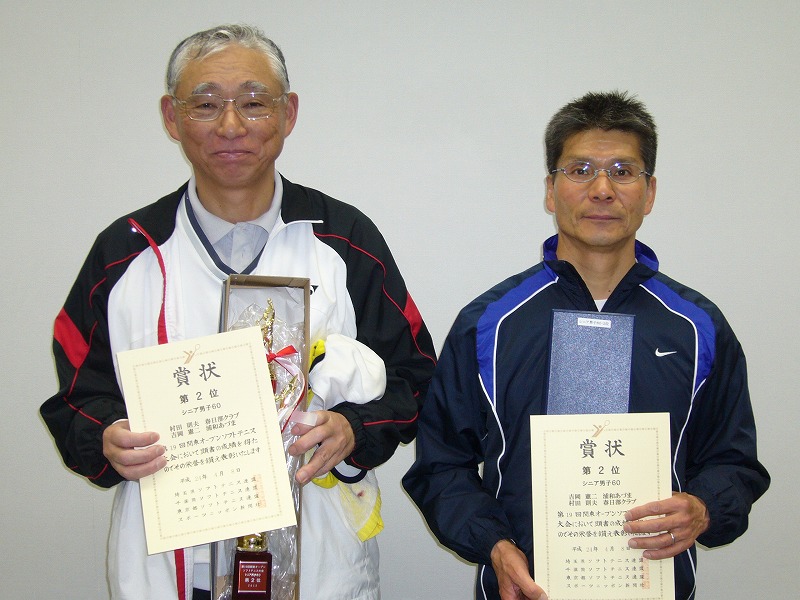 賞状
第2位
シニア男子60
村田 朋夫 春日部クラブ
吉岡 憲二 浦和あづま
第19回関東オープンソフトテニス
大会において頭書の成績を得た
のでその栄誉を讃え表彰いたします
平成 24年 4月 8日
埼玉県ソフトテニス連盟
千葉県ソフトテニス連盟
東京都ソフトテニス連盟
スポーツニッポン新聞社
第2位
賞状
第2位
シニア男子60
吉岡 憲二 浦和あづま
村田 朋夫 春日部クラブ
第19回関東オープンソフト
大会において頭書の成
のでその栄誉を讃え表彰
平成 24年 4月 8日
埼玉県ソフトテニス連盟
千葉県ソフトテニス連盟
東京都ソフトテニス連盟
スポーツニッポン新聞社